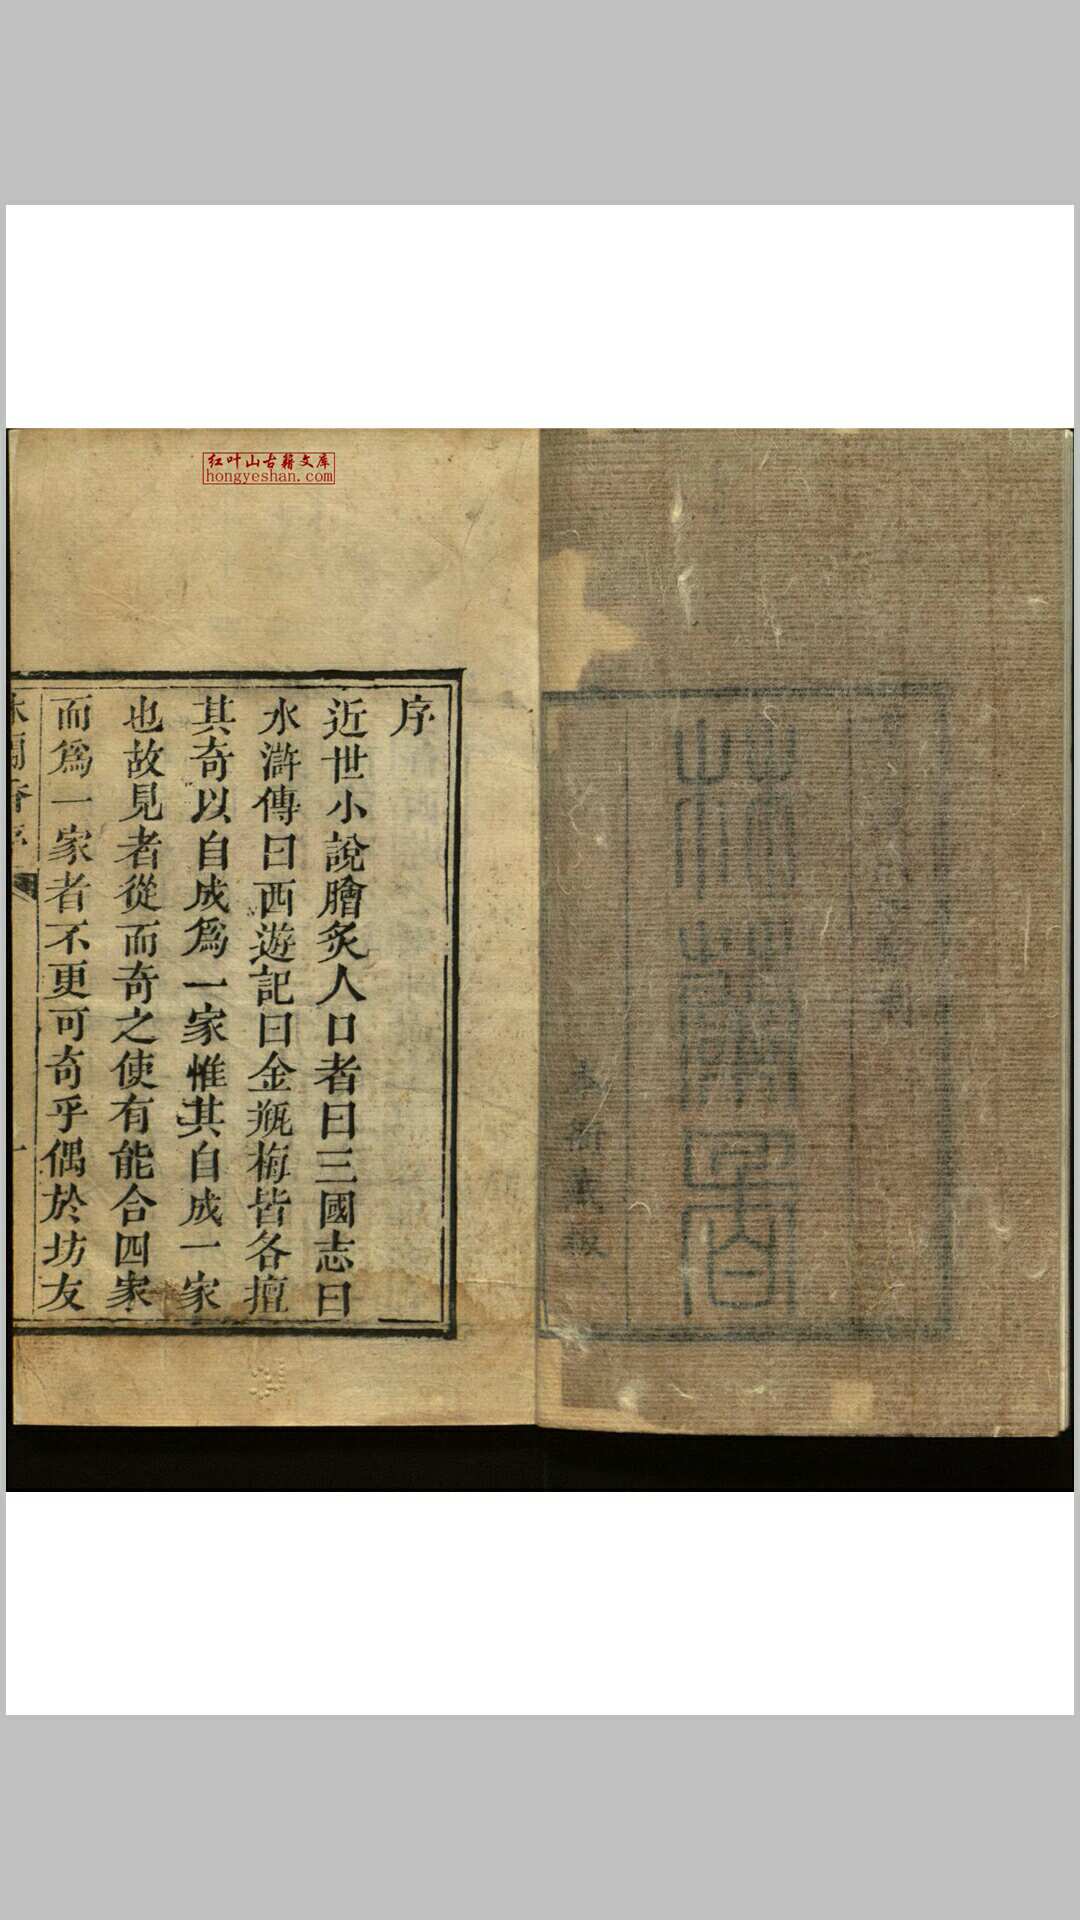 红叶山古籍文库
hongyeshan.com
本衙藏板
序
近世小說膾炙人口者曰三國志曰
水滸傳曰西遊記曰金瓶梅皆各擅
其奇以自成爲一家惟其自成一家
也故見者從而奇之使有能合四家
而爲一家者不更可奇乎偶於坊友
林蘭香序
一